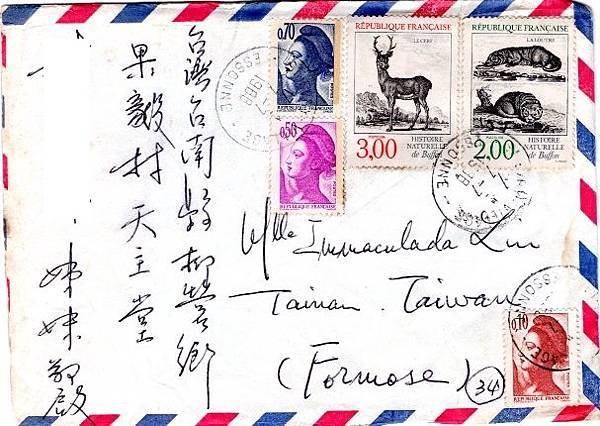 台灣台南縣柳營鄉
果毅村天主堂
姊妹
0,70
REPUBLIQUE FRANÇAISE
0,50
REPUBLIQUE FRANÇAISE
RÉPUBLIQUE FRANÇAISE
LE CERF
3,00
HISTOIRE
NATURELLE
de Buffon
RÉPUBLIQUE FRANÇAISE
LA LOUTRE
2,00
HISTOIRE
NATURELLE
de Buffon
ESSONNE
1988
Mlle Immaculada
Tainan. Taiwan
(Formose)
34
0,10
REPUBLIQUE FRANÇAISE